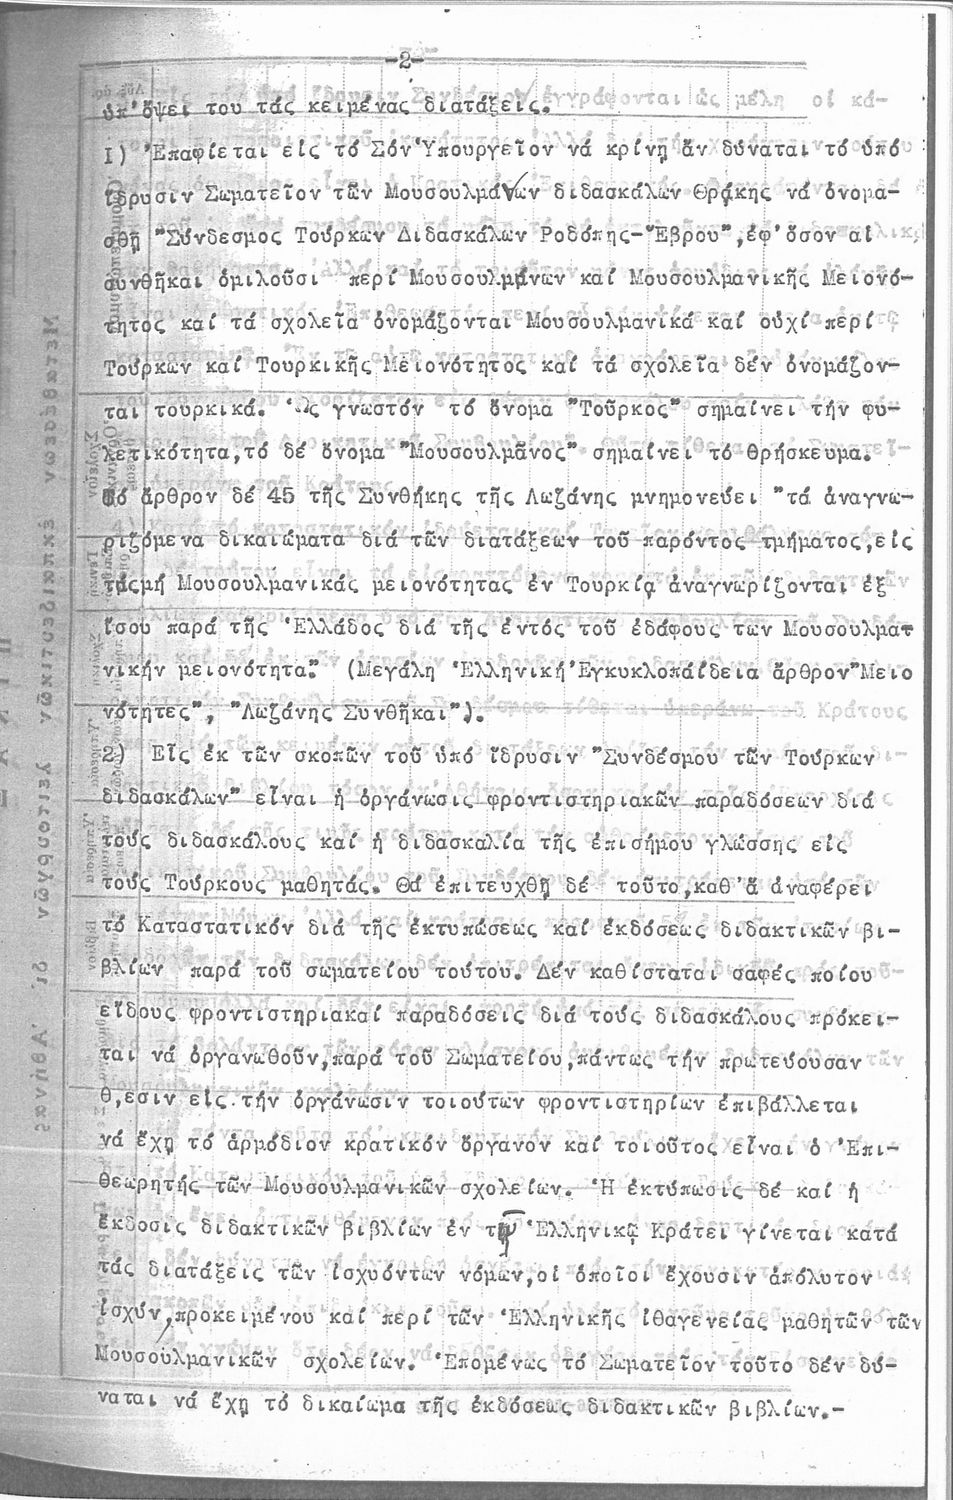 -2-
ὑπ'ὄψει του τάς κειμένας διατάξεις.
I) 'Επαφίεται εἰς τό Σόν 'Υπουργεῖον νά κρίνῃ ἄν δύναται τό ὑπό
ἵδρυσιν Σωματεῖον τῶν Μουσουλμάνων διδασκάλων Θρᾴκης νά ὀνομα-
σθῇ "Σύνδεσμος Τούρκων Διδασκάλων Ροδόπης-Ἔβρου",ἐφ'ὅσον αἱ
συνθῆκαι ὁμιλοῦσι περί Μουσουλμάνων καί Μουσουλμανικῆς Μειονό-
τητος καί τά σχολεῖα ὀνομάζονται Μουσουλμανικά καί οὐχί περί
Τούρκων καί Τουρκικῆς Μειονότητος καί τά σχολεῖα δέν ὀνομάζον-
ται τουρκικά. Ὡς γνωστόν τό ὄνομα "Τοῦρκος" σημαίνει τήν φυ-
λετικότητα,τό δέ ὄνομα "Μουσουλμᾶνος" σημαίνει τό θρήσκευμα.
Τό ἄρθρον δέ 45 τῆς Συνθήκης τῆς Λωζάνης μνημονεύει "τά ἀναγνω-
ριζόμενα δικαιώματα διά τῶν διατάξεων τοῦ παρόντος τμήματος,εἰς
τάςμή Μουσουλμανικάς μειονότητας ἐν Τουρκίᾳ ἀναγνωρίζονται ἐξ
ἴσου παρά τῆς Ἑλλάδος διά τῆς ἐντός τοῦ ἐδάφους των Μουσουλμα-
νικήν μειονότητα". (Μεγάλη Ἑλληνική Ἐγκυκλοπαίδεια ἄρθρον"Μειο
νότητες", "Λωζάνης Συνθῆκαι").
2) Εἷς ἐκ τῶν σκοπῶν τοῦ ὑπό ἵδρυσιν "Συνδέσμου τῶν Τούρκων
διδασκάλων" εἶναι ἡ ὀργάνωσις φροντιστηριακῶν παραδόσεων διά
τούς διδασκάλους καί ἡ διδασκαλία τῆς ἐπισήμου γλώσσης εἰς
τούς Τούρκους μαθητάς. Θά ἐπιτευχθῇ δέ τοῦτο,καθ'ἅ ἀναφέρει
τό Καταστατικόν διά τῆς ἐκτυπώσεως καί ἐκδόσεως διδακτικῶν βι-
βλίων παρά τοῦ σωματείου τούτου. Δέν καθίσταται σαφές ποίου
εἴδους φροντιστηριακαί παραδόσεις διά τούς διδασκάλους πρόκει-
ται νά ὀργανωθοῦν,παρά τοῦ Σωματείου,πάντως τήν πρωτεύουσαν
θ,εσιν εἰς.τήν ὀργάνωσιν τοιούτων φροντιστηρίων ἐπιβάλλεται
νά ἔχῃ τό ἁρμόδιον κρατικόν ὄργανον καί τοιοῦτος εἶναι ὁ Ἐπι-
θεωρητής τῶν Μουσουλμανικῶν σχολείων. Ἡ ἐκτύπωσις δέ καί ἡ
ἔκδοσις διδακτικῶν βιβλίων ἐν τῷ Ἑλληνικῷ Κράτει γίνεται κατά
τάς διατάξεις τῶν ἰσχυόντων νόμων,οἱ ὁποῖοι ἔχουσιν ἀπόλυτον
ἰσχύν,προκειμένου καί περί τῶν Ἑλληνικῆς ἰθαγενείας μαθητῶν τῶν
Μουσουλμανικῶν σχολείων. Ἑπομένως τό Σωματεῖον τοῦτο δέν δύ-
ναται νά ἔχῃ τό δικαίωμα τῆς ἐκδόσεως διδακτικῶν βιβλίων.-